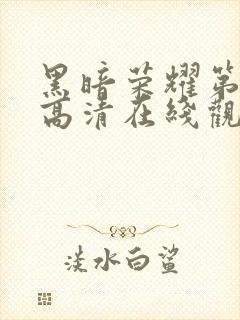 黑暗荣耀第
高清在线觀
淡水白鲨